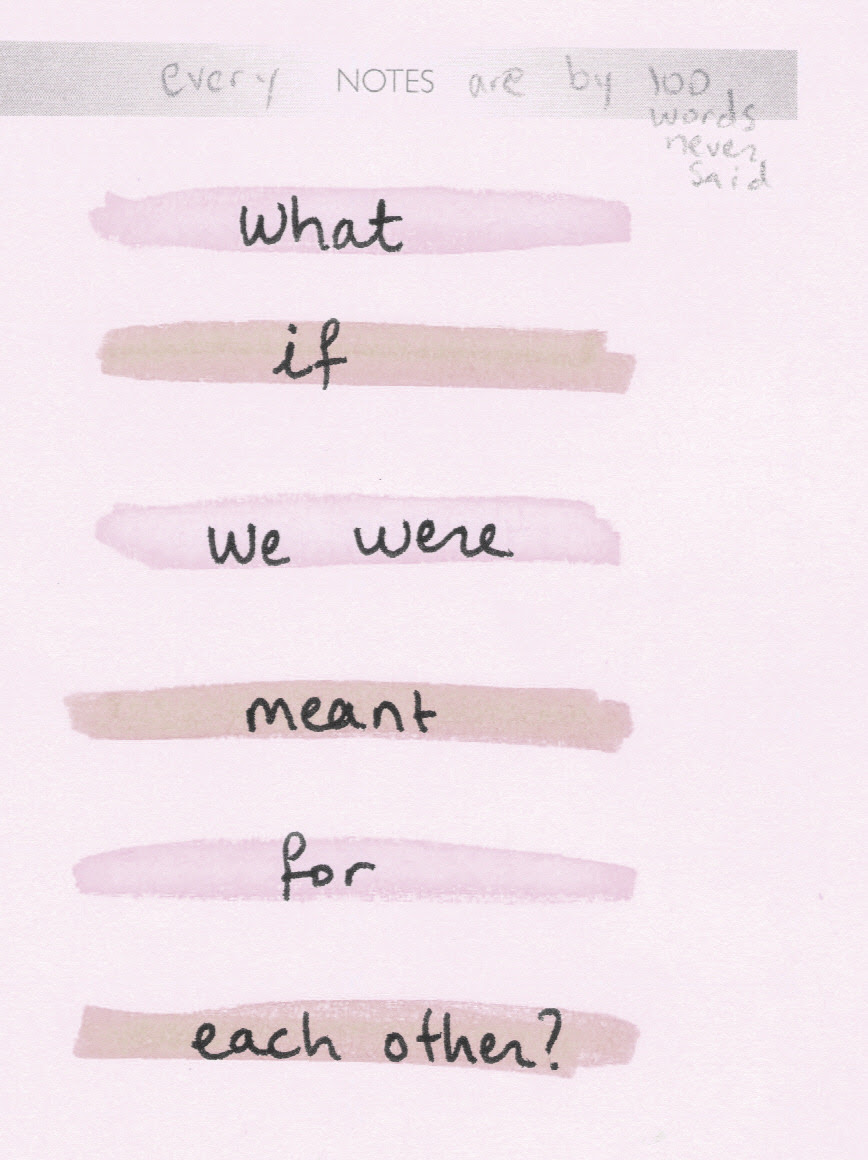 every NOTES are by 100
words
never
said
What
if
we were
meant
for
each other?